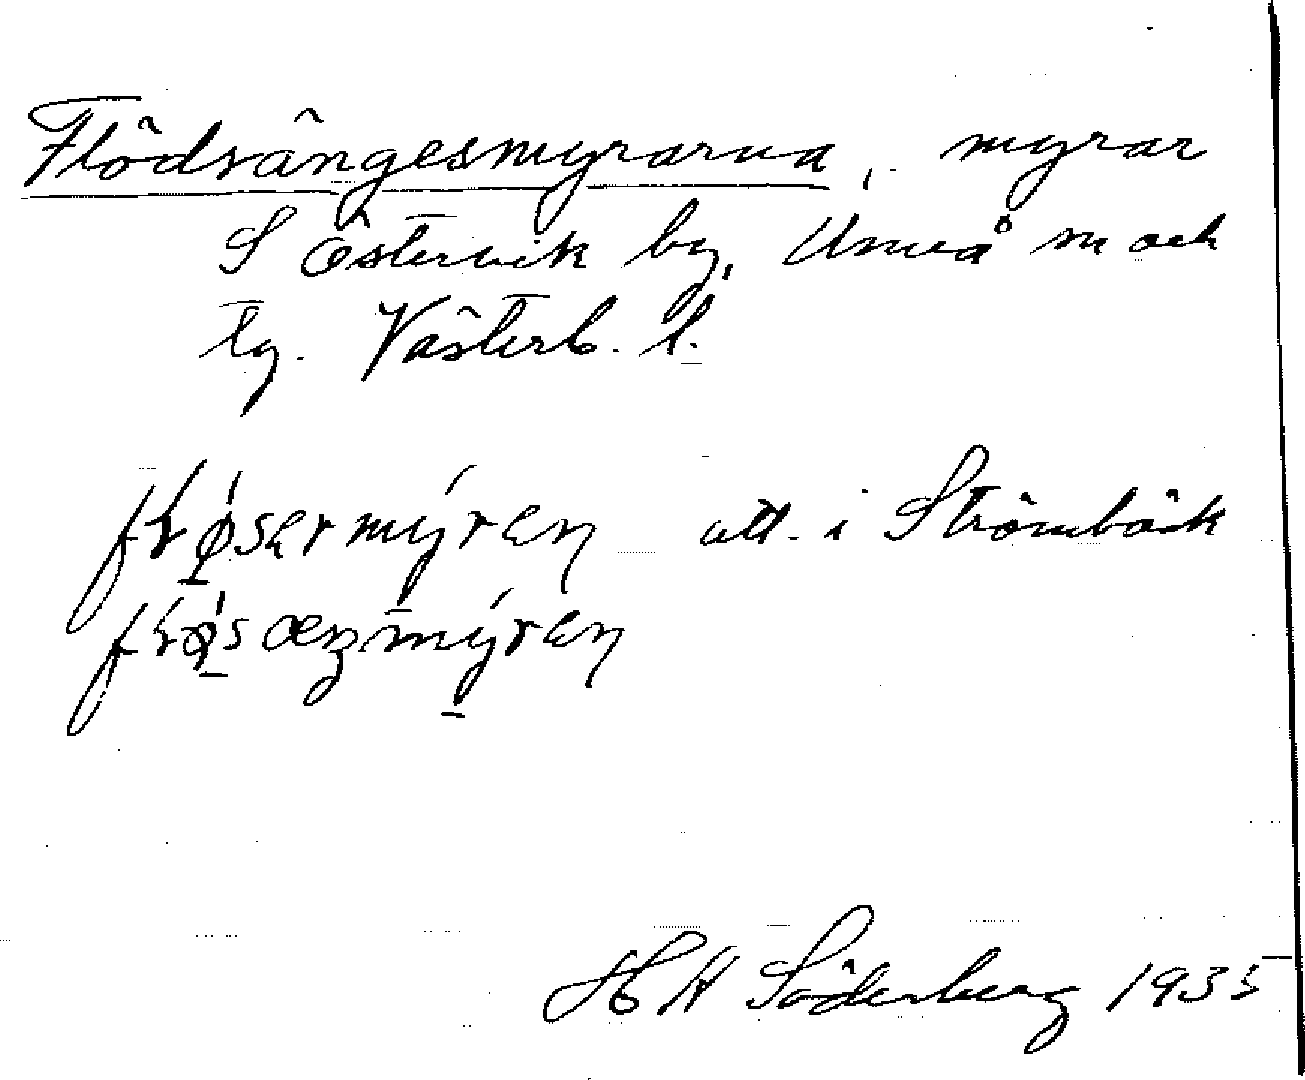 Flödsängesmyrarna, myrar
S Östervik by, Umeå sn och
tg. Västerb. l.
frǿsermýren utt. i Strömbäck
frǿsæŋmýren
H H Söderberg 1935